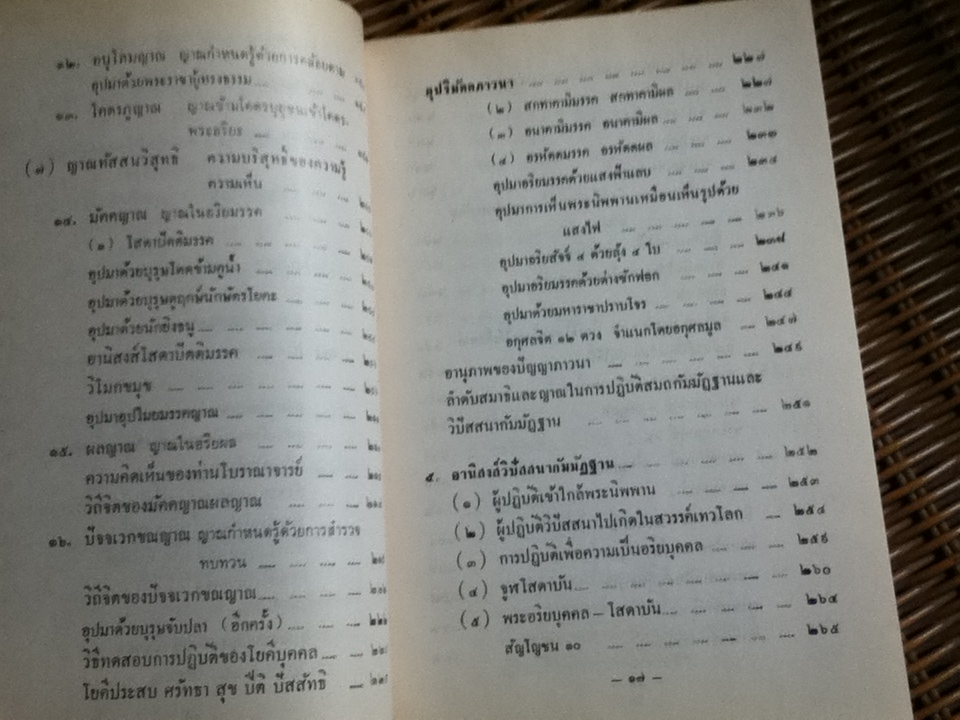 ๑๒. อนุโลมญาณ ญาณกำหนดรู้ด้วยการคล้อยตาม
อุปมาด้วยพระราชาผู้ทรงธรรม
๑๓. โคตรภูญาณ ญาณข้ามโคตรปุถุชนเข้าโคตร-
พระอริยะ
(๗) ญาณทัสสนวิสุทธิ ความบริสุทธิ์ของความรู้
ความเห็น
๑๔. มัคคญาณ ญาณในอริยมรรค
(๑) โสดาปัตติมรรค
อุปมาด้วยบุรุษโดดข้ามคูน้ำ
อุปมาด้วยบุรุษดูฤกษ์นักษัตรโยคะ
อุปมาด้วยนักยิงธนู
อานิสงส์โสดาปัตติมรรค
วิโมกขมุข
อุปมาอุปไมยมรรคญาณ
๑๕. ผลญาณ ญาณในอริยผล
ความคิดเห็นของท่านโบราณาจารย์
วิถีจิตของมัคคญาณผลญาณ
๑๖. ปัจจเวกขณญาณ ญาณกำหนดรู้ด้วยการสำรวจ
ทบทวน
วิถีจิตของปัจจเวกขณญาณ
อุปมาด้วยบุรุษจับปลา (อีกครั้ง)
วิธีทดสอบการปฏิบัติของโยคีบุคคล
โยคีประสบ ศรัทธา สุข ปีติ ปัสสัทธิ
อุปริมัคคภาวนา ๒๒๗
(๒) สกทาคามิมรรค สกทาคามิผล ๒๒๗
(๓) อนาคามิมรรค อนาคามิผล ๒๓๒
(๔) อรหัตตมรรค อรหัตตผล ๒๓๓
อุปมาอริยมรรคด้วยแสงฟ้าแลบ ๒๓๔
อุปมาการเห็นพระนิพพานเหมือนเห็นรูปด้วย
แสงไฟ ๒๓๖
อุปมาอริยสัจจ์ ๔ ด้วยถุง ๔ ใบ ๒๓๗
อุปมาอริยมรรคด้วยด่างซักฟอก ๒๔๑
อุปมาด้วยมหาราชาปราบโจร ๒๔๔
อกุศลจิต ๑๒ ดวง จำแนกโดยอกุศลมูล ๒๔๗
อานุภาพของปัญญาภาวนา ๒๔๙
ลำดับสมาธิและญาณในการปฏิบัติสมถกัมมัฏฐานและ
วิปัสสนากัมมัฏฐาน ๒๕๑
๕. อานิสงส์วิปัสสนากัมมัฏฐาน ๒๕๒
(๑) ผู้ปฏิบัติเข้าใกล้พระนิพพาน ๒๕๓
(๒) ผู้ปฏิบัติวิปัสสนาไปเกิดในสวรรค์เทวโลก ๒๕๔
(๓) การปฏิบัติเพื่อความเป็นอริยบุคคล ๒๕๙
(๔) จูฬโสดาบัน ๒๖๐
(๕) พระอริยบุคคล – โสดาบัน ๒๖๔
สัญโญชน ๑๐ ๒๖๕
– ๑๗ –